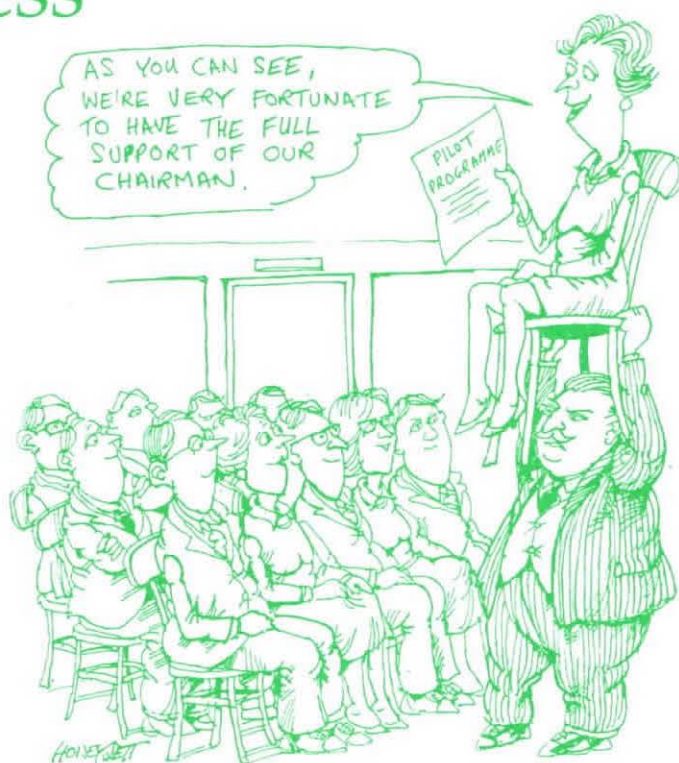 ess
AS YOU CAN SEE,
WE'RE VERY FORTUNATE
TO HAVE THE FULL
SUPPORT OF OUR
CHAIRMAN.
PILOT
PROGRAMME
HONEYSETT